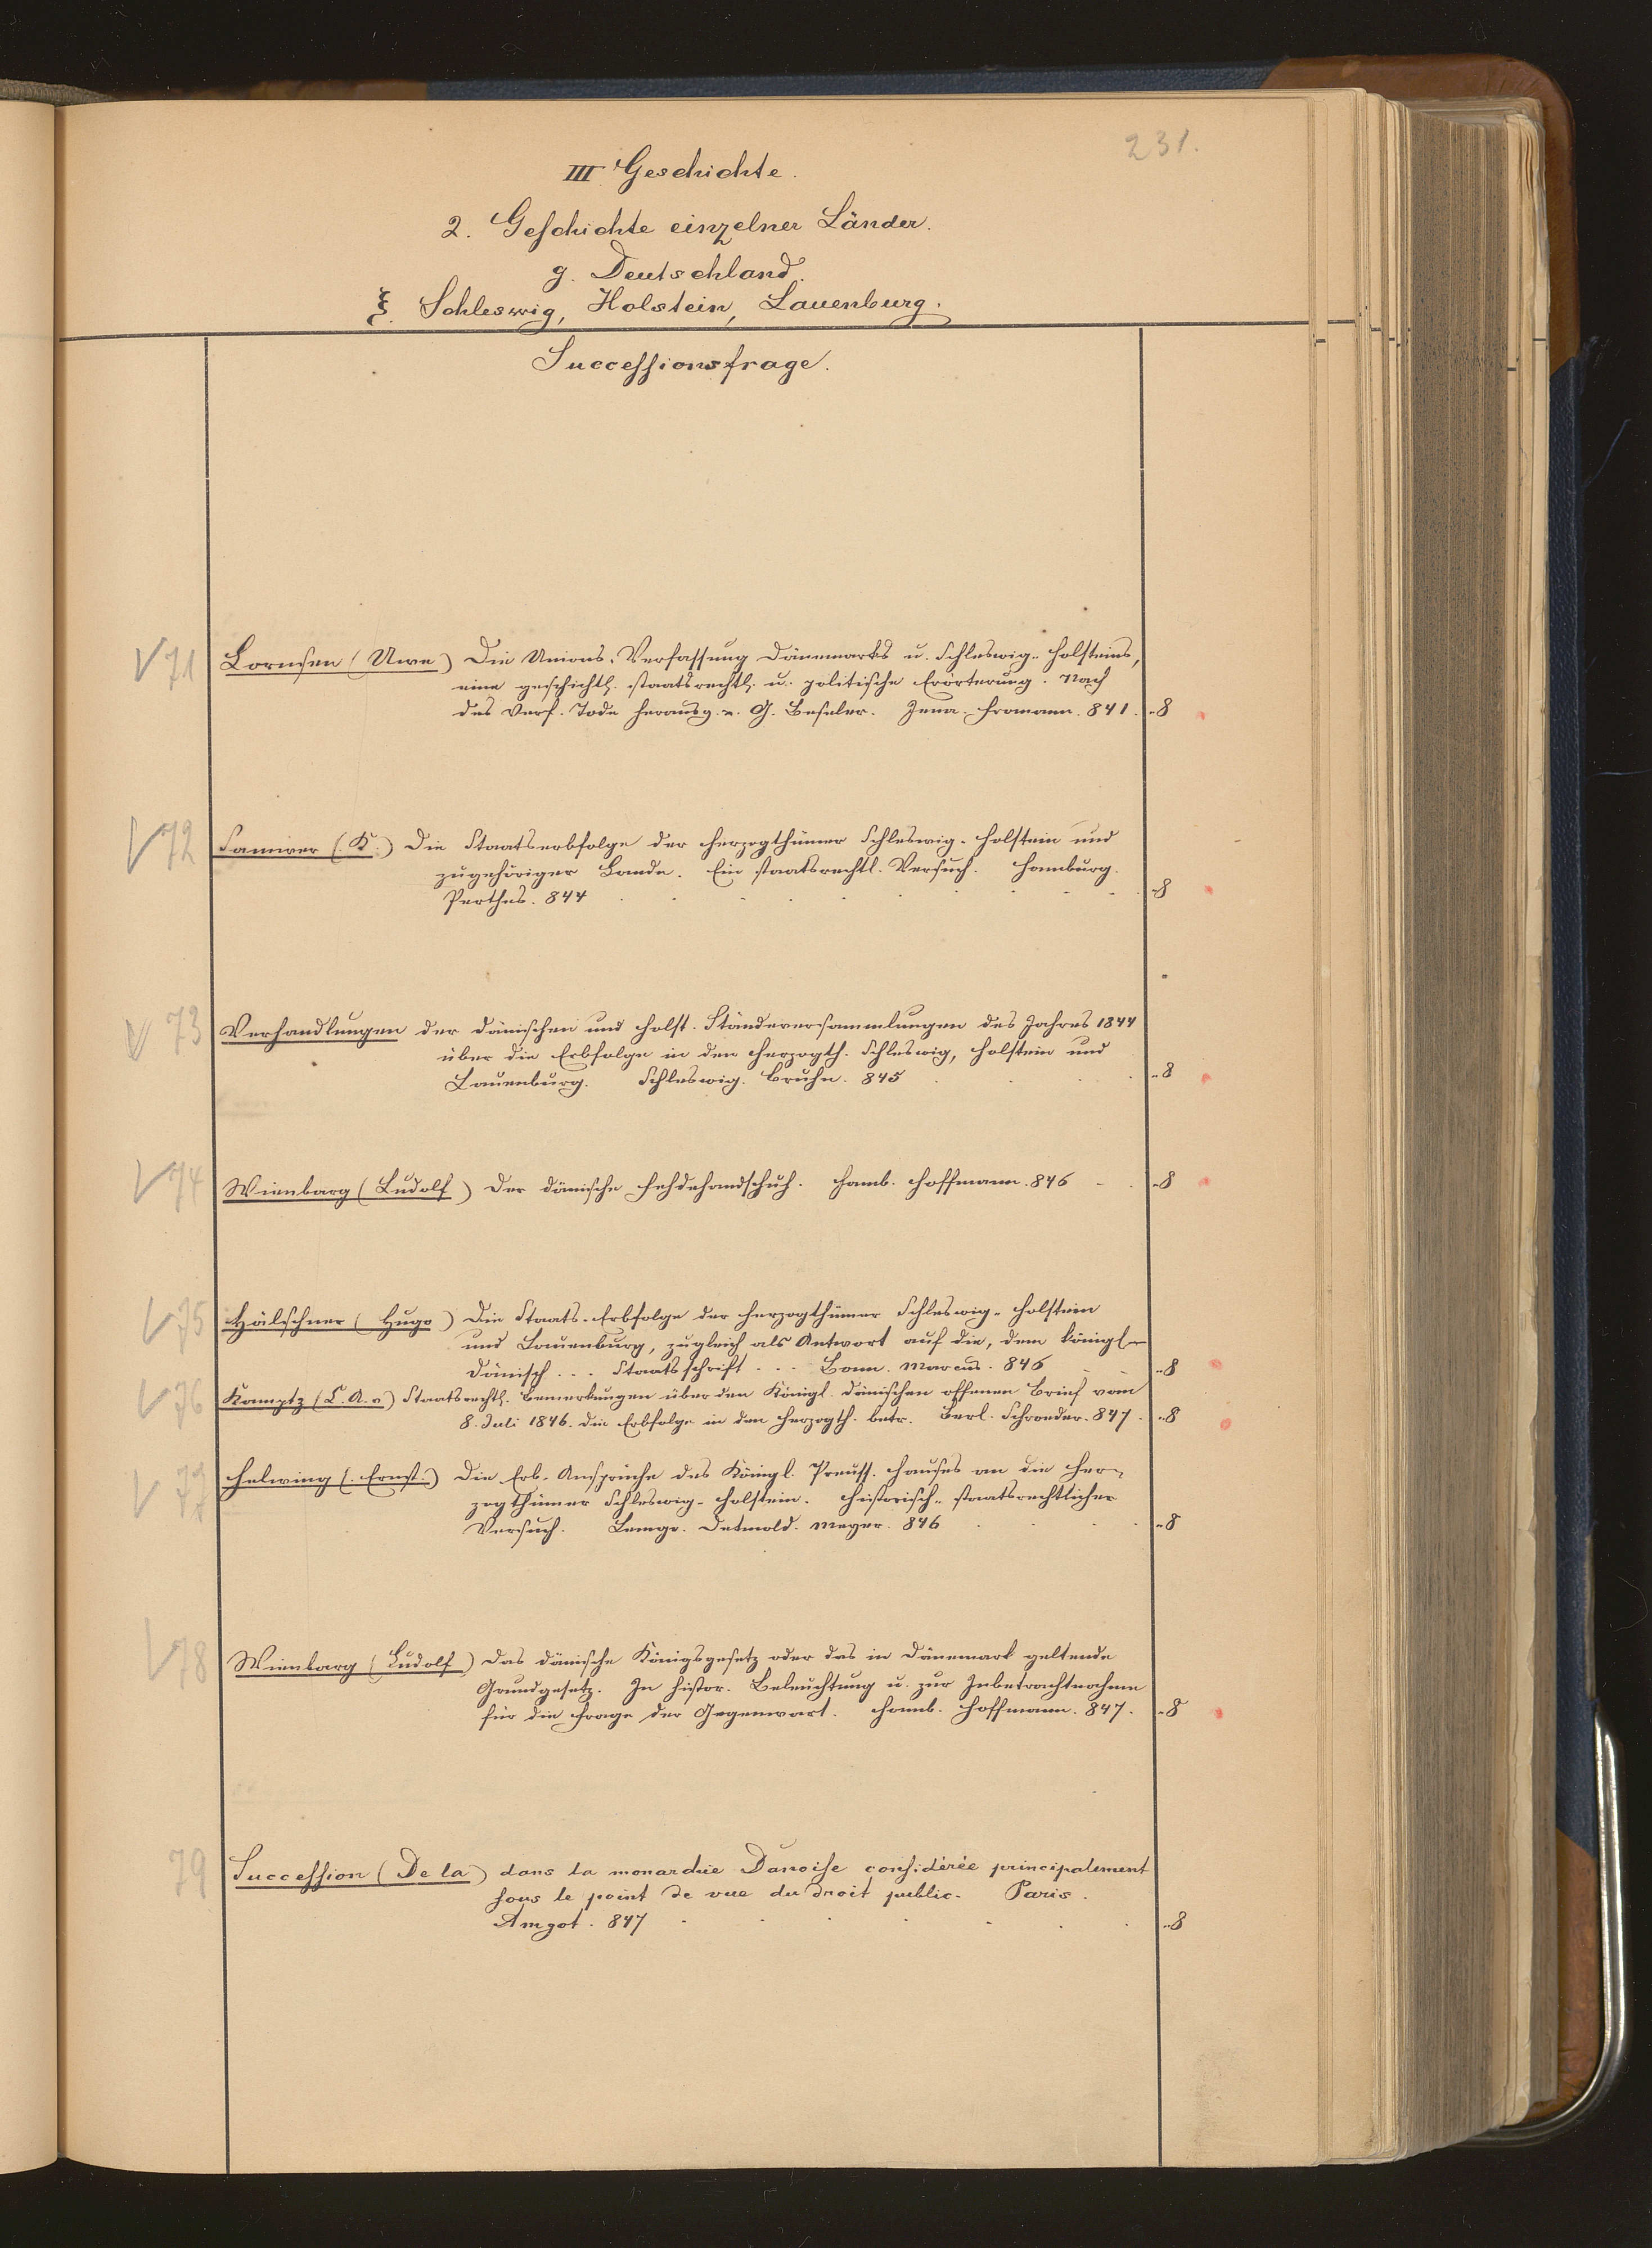 231.
III. Geschichte.
2. Geschichte einzelner Länder.
g. Deutschland.
ξ. Schleswig, Holstein, Lauenburg.
Successionsfrage.
71 Lornsen (Uwe) Die Unions-Verfassung Dänemarks u. Schleswig-Holsteins,
eine geschichtl. staatsrechtl. u. politische Erörterung. Nach
des Verf. Tode herausg. v. G. Beseler. Jena. Fromann. 841. -8
72 Samwer (K.) Die Staatserbfolge der Herzogthümer Schleswig-Holstein und
zugehöriger Lande. Ein staatsrechtl. Versuch. Hamburg.
Perthes. 844 -8
73 Verhandlungen der dänischen und holst. Ständeversammlungen des Jahres 1844
über die Erbfolge in den Herzogth. Schleswig, Holstein und
Lauenburg. Schleswig. Bruhn. 845 -8
74 Wienbarg (Ludolf) Der dänische Fehdehandschuh. Hamb. Hoffmann. 846 -8
75 Hälschner (Hugo) Die Staats-Erbfolge der Herzogthümer Schleswig-Holstein
und Lauenburg, zugleich als Antwort auf die, dem königl-
Dänisch... Staatsschrift... Bonn. Marcus. 846 -8
76 Kamptz (C. A. v) Staatsrechtl. Bemerkungen über den Königl. dänischen offenen Brief vom
8. Juli 1846. die Erbfolge in den Herzogth. betr. Berl. Schroeder. 847. -8
77 Helwing (Ernst:) Die Erb-Ansprüche des Königl. Preuss. Hauses an die Her-
zogthümer Schleswig-Holstein. Historisch-staatsrechtlicher
Versuch. Lemgo. Detmold. Meyer. 846 -8
78 Wienbarg (Ludolf) Das dänische Königsgesetz oder das in Dänemark geltende
Grundgesetz. In histor. Beleuchtung u. zur Inbetrachtnahme
für die Frage der Gegenwart. Hamb. Hoffmann. 847. -8
79 Succession (De la) dans la monarchie Danoise considérée principalement
sous le point de vue du droit public. Paris.
Amyot. 847 -8